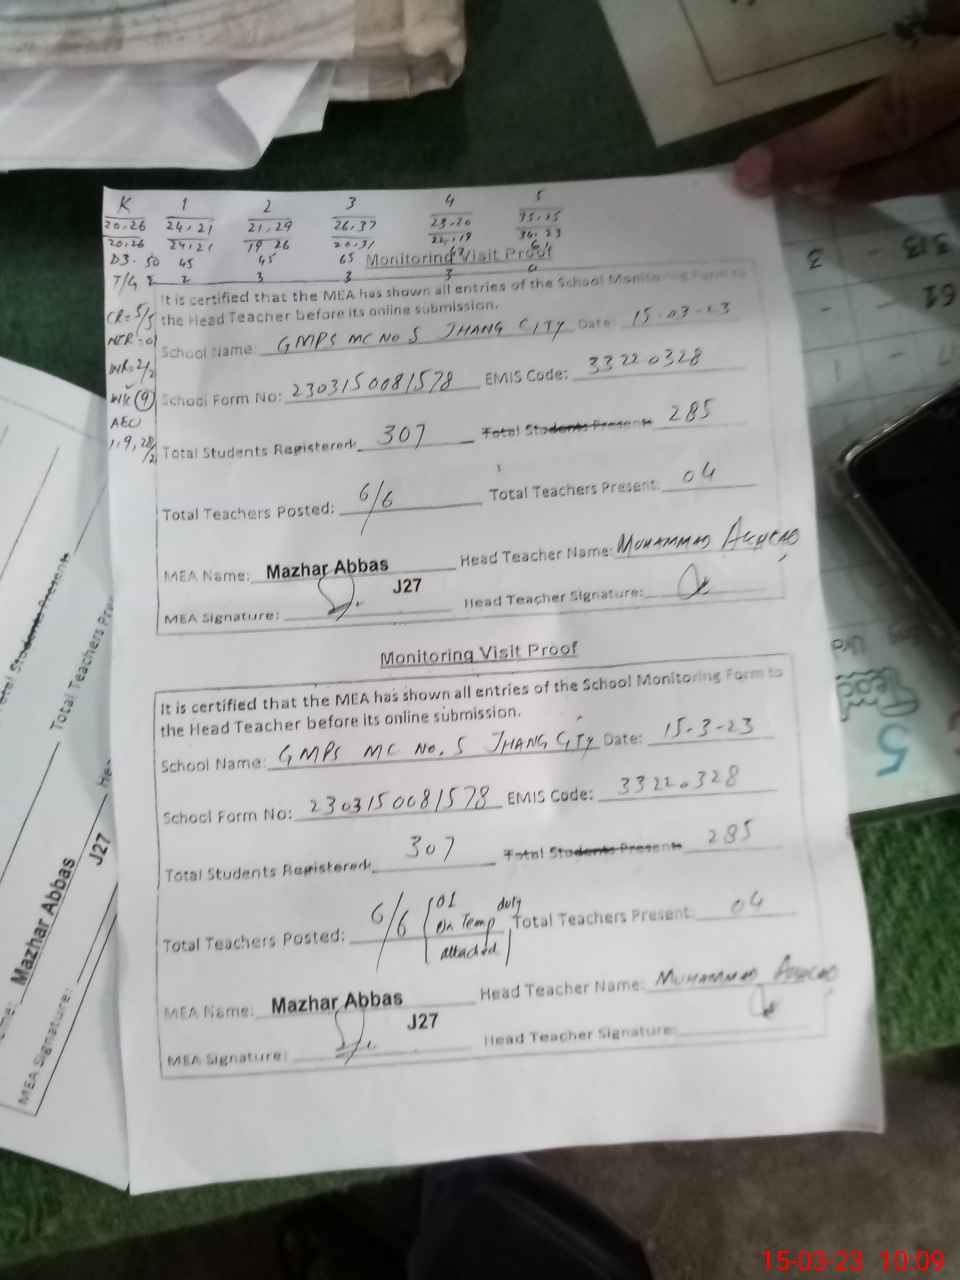 K 1 2 3 4 5
20,26 24,21 21,29 26,37 23,20 35,25
20,26 24,21 19 26 20,31 22,19 34,23
D3. 50 45 45 65
Monitoring Visit Proof
T/G 2 3 3 3
It is certified that the MEA has shown all entries of the School Monitoring Form to
the Head Teacher before its online submission.
CR=5/5
School Name: GMPS MC NO 5 JHANG CITY Date: 15-03-23
WR=2/2
School Form No: 2303150081578 EMIS Code: 33220328
AEO
Total Students Registered: 307 Total Students Present: 285
Total Teachers Posted: 6/6 Total Teachers Present: 04
MEA Name: Mazhar Abbas Head Teacher Name: MUHAMMAD
J27
MEA Signature: Head Teacher Signature:
Monitoring Visit Proof
It is certified that the MEA has shown all entries of the School Monitoring Form to
the Head Teacher before its online submission.
School Name: GMPS MC NO. 5 JHANG CITY Date: 15-3-23
School Form No: 2303150081578 EMIS Code: 33220328
Total Students Registered: 307 Total Students Present: 285
Total Teachers Posted: 6/6 01 On Temp duty attached Total Teachers Present: 04
MEA Name: Mazhar Abbas Head Teacher Name: MUHAMMAD
J27
MEA Signature: Head Teacher Signature:
Total Students Present
Total Teachers
Mazhar Abbas
J27
MEA Signature:
5
15-03-23 10:09